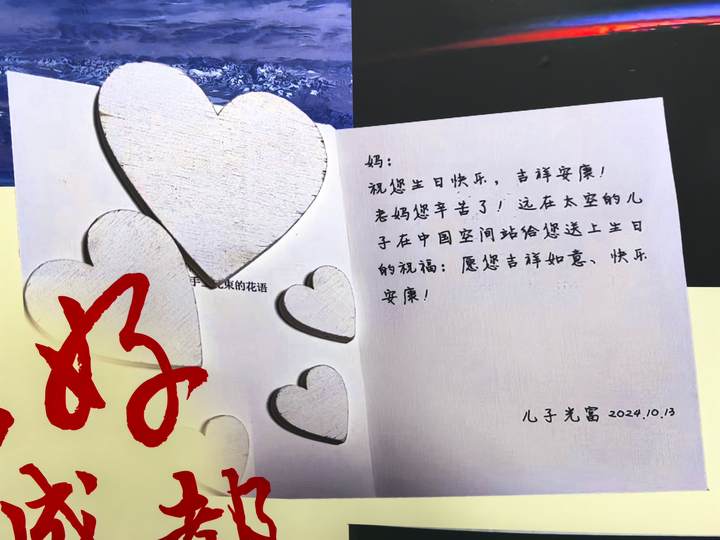 妈：
祝您生日快乐，吉祥安康！
老妈您辛苦了！远在太空的儿
子在中国空间站给您送上生日
的祝福：愿您吉祥如意、快乐
安康！
儿子光富 2024.10.13
束的花语
好
成都